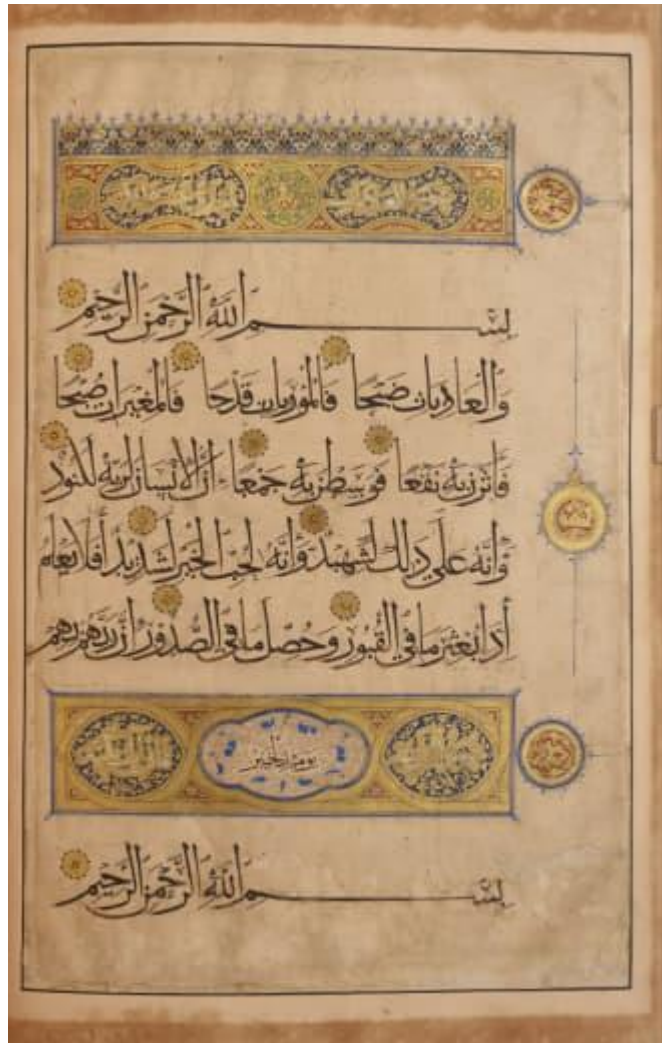 بسم الله الرحمن الرحيم
والعاديات ضبحا فالموريات قدحا فالمغيرات صبحا
فأثرن به نقعا فوسطن به جمعا إن الإنسان لربه لكنود
وإنه على ذلك لشهيد وإنه لحب الخير لشديد أفلا يعلم
إذا بعثر ما في القبور وحصل ما في الصدور إن ربهم بهم
يومئذ لخبير
بسم الله الرحمن الرحيم